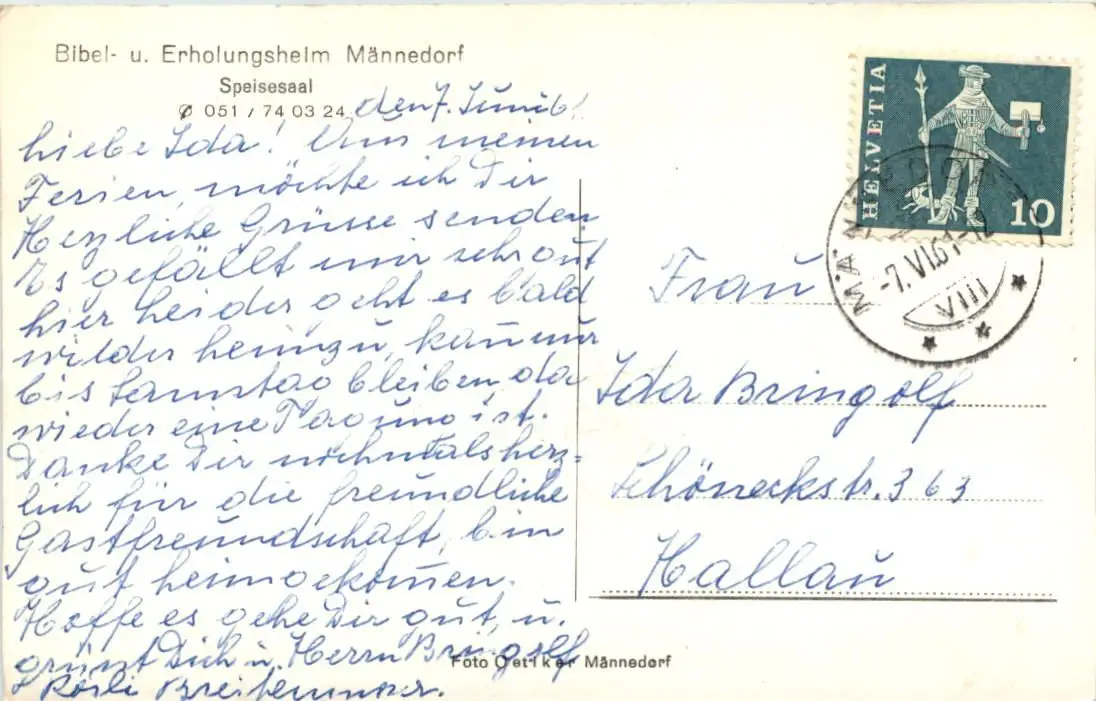 Bibel- u. Erholungsheim Männedorf
Speisesaal
✆ 051 / 74 03 24
den 7. Juni 61.
Liebe Ida! Aus meinen
Ferien, möchte ich Dir
Herzliche Grüsse senden
Es gefällt mir sehr gut
hier leider geht es bald
wieder heimzu, kann nur
bis Samstag bleiben, da
wieder eine Tagung ist.
Danke Dir nochmals herz=
lich für die freundliche
Gastfreundschaft, bin
gut heimgekommen.
Hoffe es gehe Dir gut, u.
grüsst Dich u. Herrn Bringolf
Rösli
HELVETIA
10
-7. VI. 61-12
VIII
Frau
Ida Bringolf
Schöneckstr. 363
Hallau
Foto Oetiker Männedorf